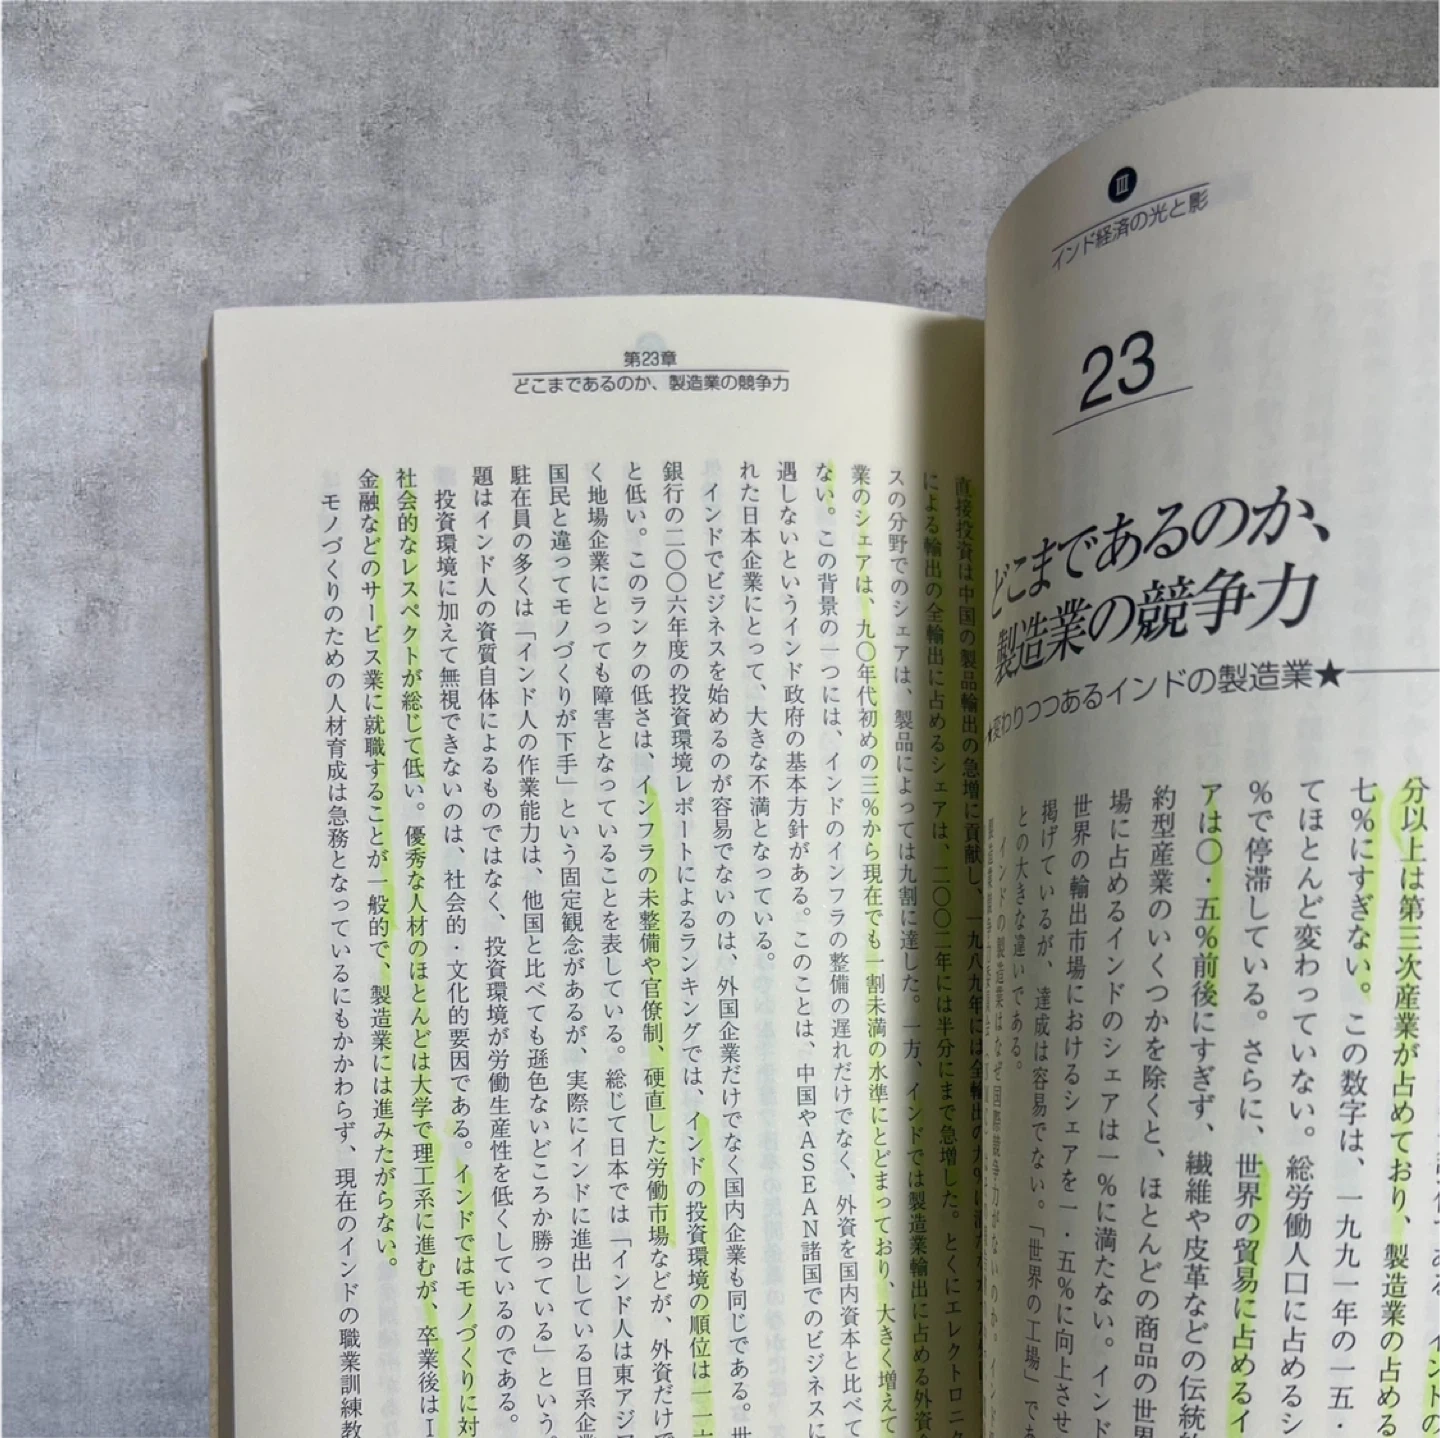 Ⅲ
インド経済の光と影
23
どこまであるのか、
製造業の競争力
★変わりつつあるインドの製造業★
分以上は第三次産業が占めており、製造業の占める
七％にすぎない。この数字は、一九九一年の一五・
てほとんど変わっていない。総労働人口に占めるシ
％で停滞している。さらに、世界の貿易に占めるイ
アは〇・五％前後にすぎず、繊維や皮革などの伝統的
約型産業のいくつかを除くと、ほとんどの商品の世界
場に占めるインドのシェアは一％に満たない。インド
世界の輸出市場におけるシェアを一・五％に向上させ
掲げているが、達成は容易でない。「世界の工場」であ
との大きな違いである。
インドの製造業はなぜ国際競争力がないのか。インド
第23章
どこまであるのか、製造業の競争力
直接投資は中国の製品輸出の急増に貢献し、一九八九年には全輸出の九％に
による輸出の全輸出に占めるシェアは、二〇〇二年には半分にまで急増した。とくにエレクトロニク
スの分野でのシェアは、製品によっては九割に達した。一方、インドでは製造業輸出に占める外資
業のシェアは、九〇年代初めの三％から現在でも一割未満の水準にとどまっており、大きく増えて
ない。この背景の一つには、インドのインフラの整備の遅れだけでなく、外資を国内資本と比べて
遇しないというインド政府の基本方針がある。このことは、中国やASEAN諸国でのビジネスに
れた日本企業にとって、大きな不満となっている。
インドでビジネスを始めるのが容易でないのは、外国企業だけでなく国内企業も同じである。世
銀行の二〇〇六年度の投資環境レポートによるランキングでは、インドの投資環境の順位は一一六
と低い。このランクの低さは、インフラの未整備や官僚制、硬直した労働市場などが、外資だけで
く地場企業にとっても障害となっていることを表している。総じて日本では「インド人は東アジア
国民と違ってモノづくりが下手」という固定観念があるが、実際にインドに進出している日系企業
駐在員の多くは「インド人の作業能力は、他国と比べても遜色ないどころか勝っている」という。
題はインド人の資質自体によるものではなく、投資環境が労働生産性を低くしているのである。
投資環境に加えて無視できないのは、社会的・文化的要因である。インドではモノづくりに対
社会的なレスペクトが総じて低い。優秀な人材のほとんどは大学で理工系に進むが、卒業後はI
金融などのサービス業に就職することが一般的で、製造業には進みたがらない。
モノづくりのための人材育成は急務となっているにもかかわらず、現在のインドの職業訓練教